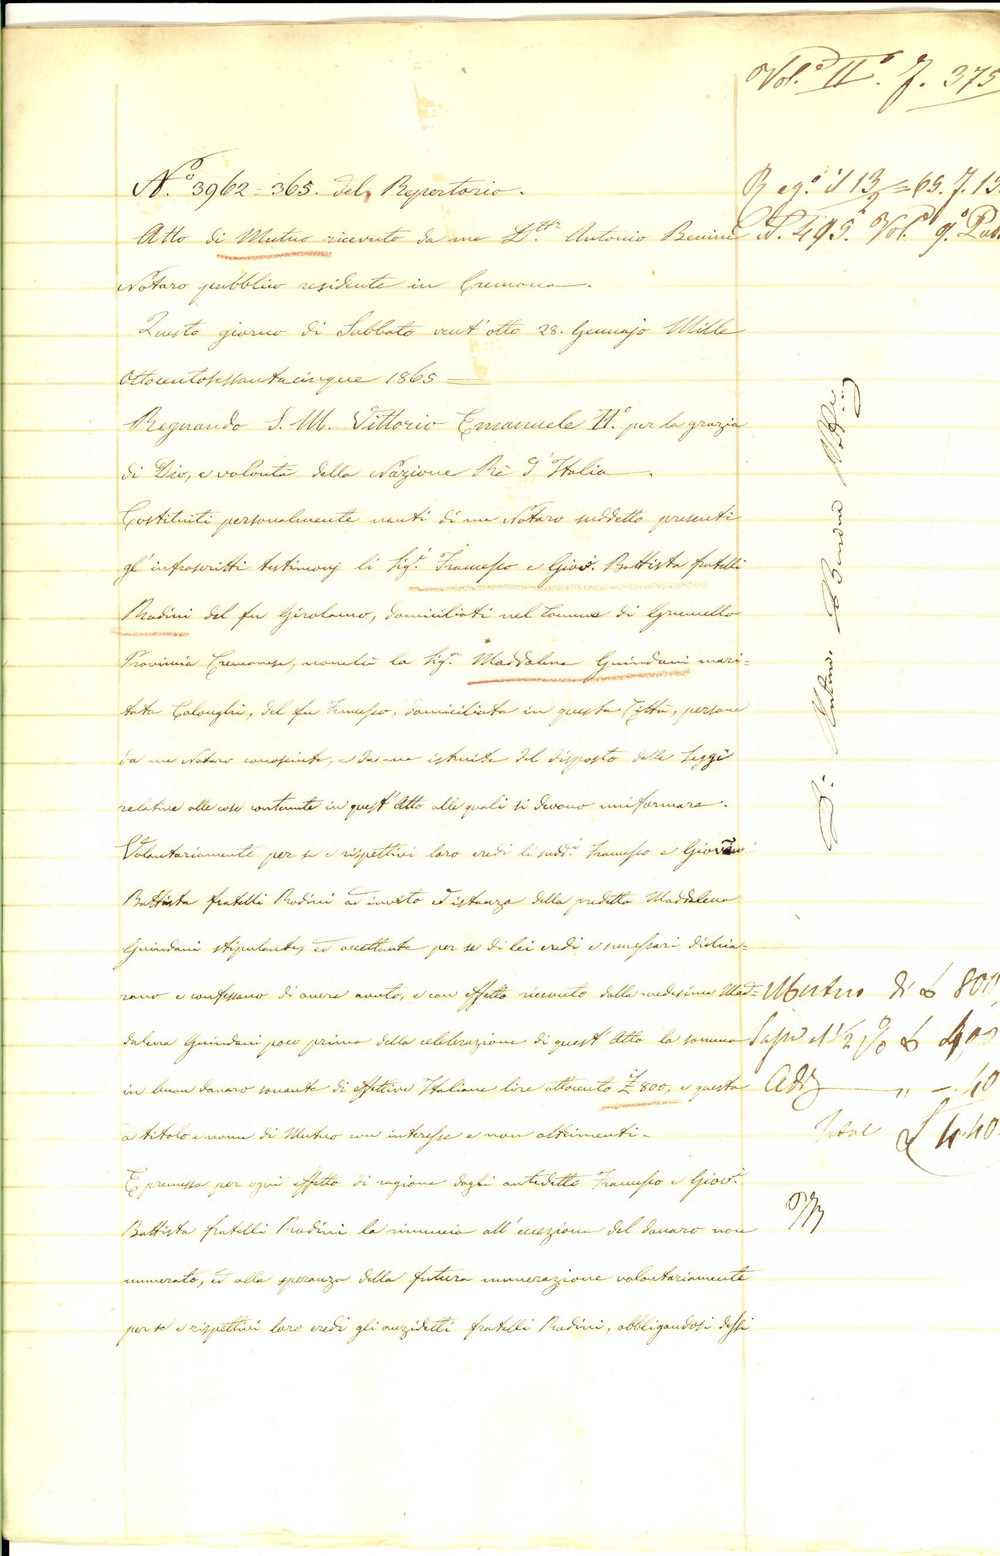 Vol.º IIº. f. 375
Nº. 3962=365. del Repertorio.
Atto di Mutuo ricevuto da me D.ttr Antonio Benini
Notaro pubblico residente in Cremona.
Questo giorno di Sabbato vent'otto 28. Gennajo Mille
Ottocentosessantacinque 1865
Regnando S. M. Vittorio Emanuele IIº. per la grazia
di Dio, e volontà della Nazione Rè d'Italia.
Costituiti personalmente nanti di me Notaro suddetto presenti
gl'infrascritti testimonj li Sig.i Francesco e Giov. Battista fratelli
Rodini del fu Girolamo, domiciliati nel Comune di Grumello
Provincia Cremonese, nonchè la Sig.a Maddalena Guindani mari-
tata Calonghi, del fu Francesco, domiciliata in questa Città, persone
da me Notaro conosciute, e da me istruite del disposto delle Leggi
relative alle cose contenute in quest'Atto alle quali si devono uniformare.
Volontariamente per se e rispettivi loro eredi li sudd.i Francesco e Giovanni
Battista fratelli Rodini ad invito ed istanza della predetta Maddalena
Guindani stipulante, ed accettante per se di lei eredi e successori dichia-
rano e confessano di avere avuto, e con effetto ricevuto dalla medesima Mad=
dalena Guindani poco prima della celebrazione di quest'Atto la somma
in buon danaro sonante di effettive Italiane lire ottocento £ 800, e questa
a titolo e nome di Mutuo con interesse e non altrimenti.
E premessa per ogni effetto di ragione dagli antedetti Francesco e Giov.i
Battista fratelli Rodini la rinuncia all'eccezione del danaro non
numerato, ed alla speranza della futura numerazione volontariamente
per se e rispettivi loro eredi gli anzidetti fratelli Rodini, obbligandosi dessi
Reg.º il 13 = 65. f. 13
N. 495. Vol. 9.º
D.r Antonio Benini
Mutuo di £ 800,
1/2 % £ 4,00
Add. " -. 40
Total £ 4.40